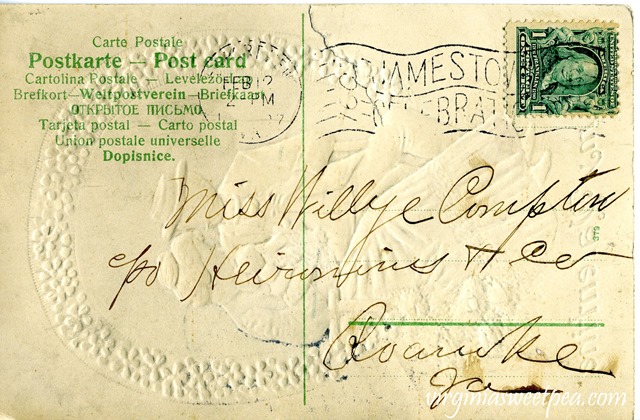 Carte Postale
Postkarte — Post card
Cartolina Postale — Levelezőlap
Brefkort—Weltpostverein—Briefkaart
ОТКРЫТОЕ ПИСЬМО
Tarjeta postal — Carto postal
Union postale universelle
Dopisnice.
FEB 12
2 PM
VA.
JAMESTOW
1
1
Miss Willye Compton
c/o Heironimus & Co
Roanoke
Va
379
virginiasweetpea.com